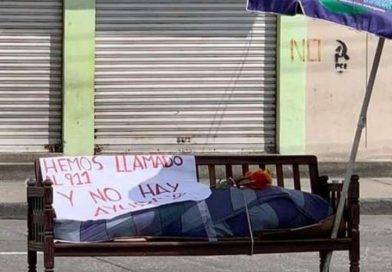 HEMOS LLAMADO
AL 911
Y NO HAY
AYUDA
NO
PCE